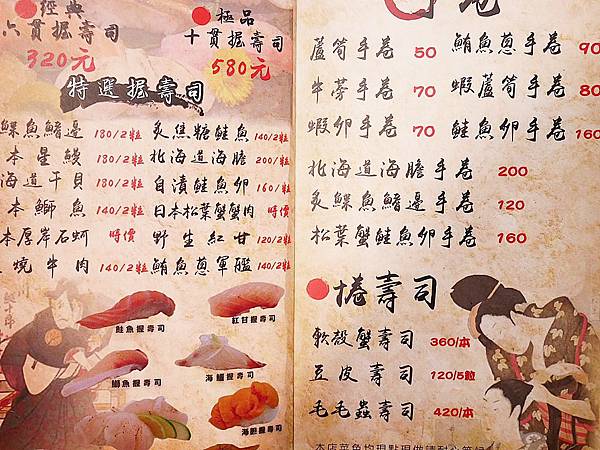 經典
六貫握壽司
320元
極品
十貫握壽司
580元
特選握壽司
鰈魚鰭邊 180/2粒
本星鰻 180/2粒
海道干貝 180/2粒
本鰤魚 140/2粒
本厚岸石蚵 時價
燒牛肉 140/2粒
炙焦糖鮭魚 140/2粒
北海道海膽 200/1粒
自漬鮭魚卵 160/1粒
日本松葉蟹蟹肉 時價
野生紅甘 120/2粒
鮪魚蔥軍艦 140/2粒
鮭魚握壽司
紅甘握壽司
鰤魚握壽司
海鱺握壽司
海膽握壽司
蘆筍手卷 50
牛蒡手卷 70
蝦卵手卷 70
鮪魚蔥手卷 90
蝦蘆筍手卷 80
鮭魚卵手卷 160
北海道海膽手卷 200
炙鰈魚鰭邊手卷 120
松葉蟹鮭魚卵手卷 160
捲壽司
軟殼蟹壽司 360/本
豆皮壽司 120/5粒
毛毛蟲壽司 420/本